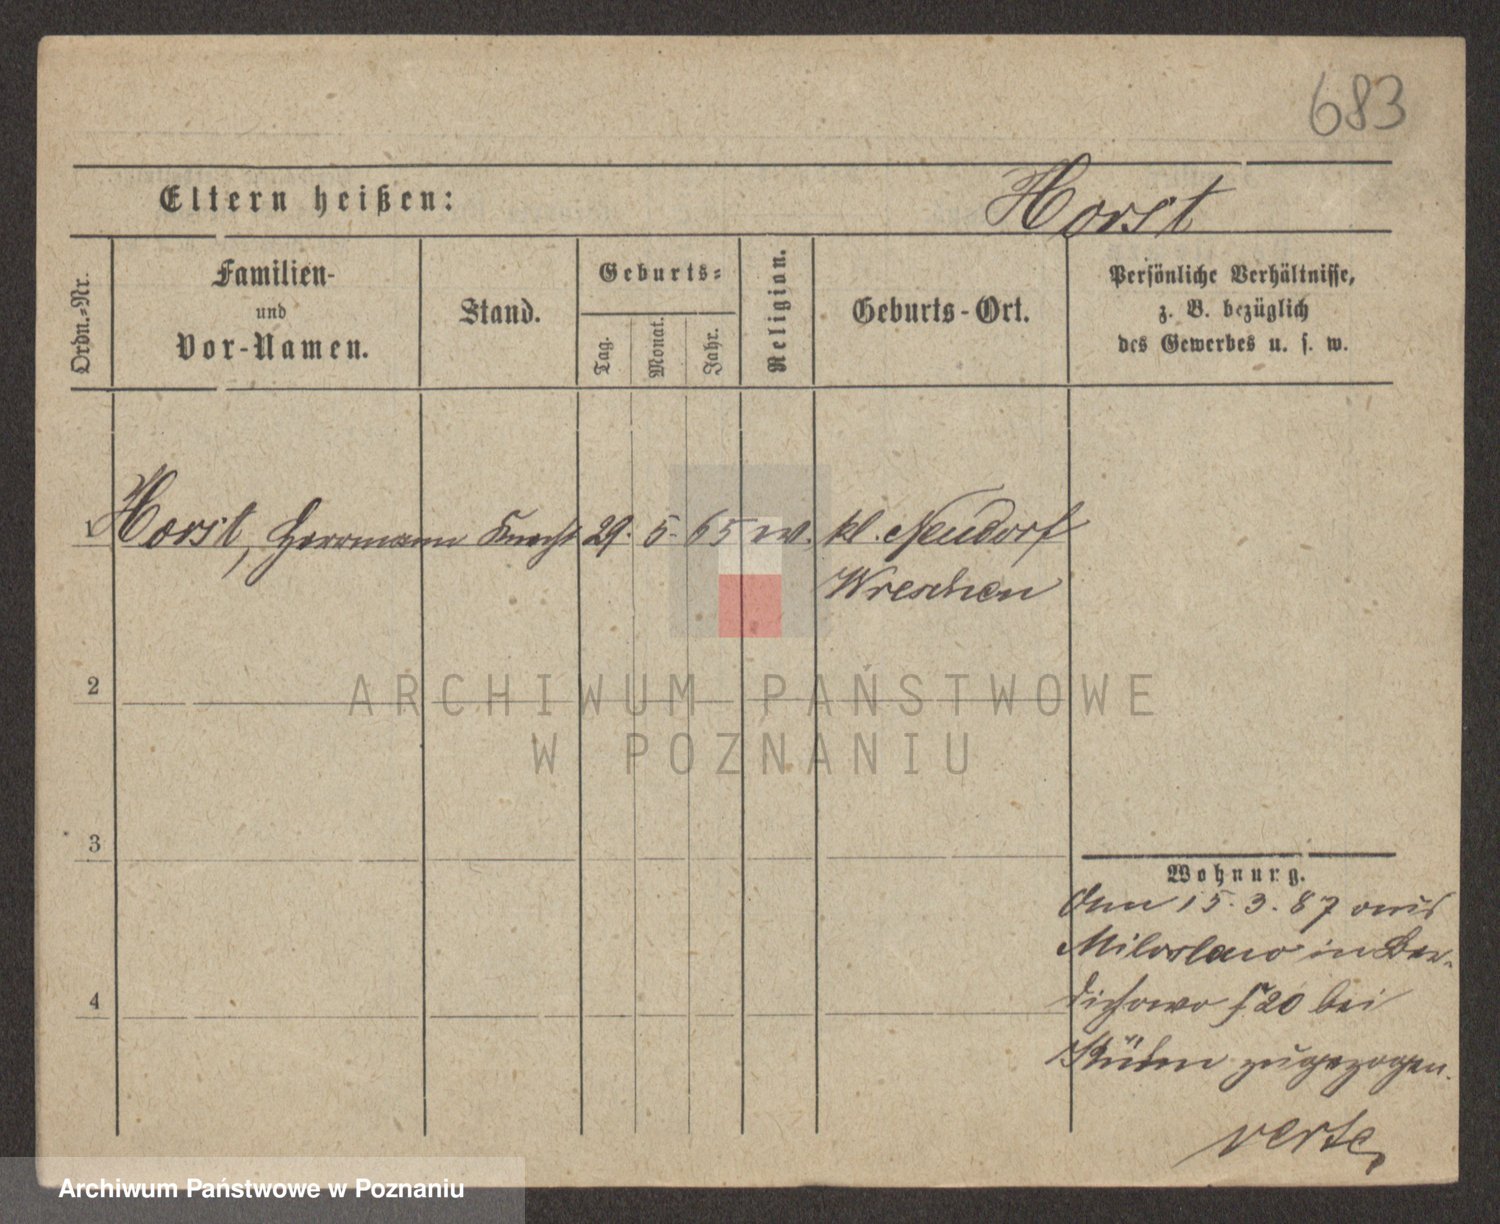 683
Eltern heißen:
Horst
Ordn.-Nr.
Familien-
und
Vor-Namen.
Stand.
Geburts-
Tag.
Monat.
Jahr.
Religion.
Geburts-Ort.
Persönliche Verhältnisse,
z. B. bezüglich
des Gewerbes u. s. w.
1 Horst, Herrmann Knecht 29. 5. 65 ev. kl. Neudorf
Wreschen
2
ARCHIWUM PAŃSTWOWE
W POZNANIU
3
4
Wohnung.
Den 15. 3. 87 aus
Miloslaw in Ber-
dichowo 20 bei
Kühn zugezogen.
verte
Archiwum Państwowe w Poznaniu